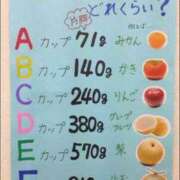 片胸
どれくらい?
例えば…
Aカップ 71g みかん
Bカップ 140g かき
Cカップ 240g りんご
Dカップ 380g グレープフルーツ
Eカップ 570g 梨